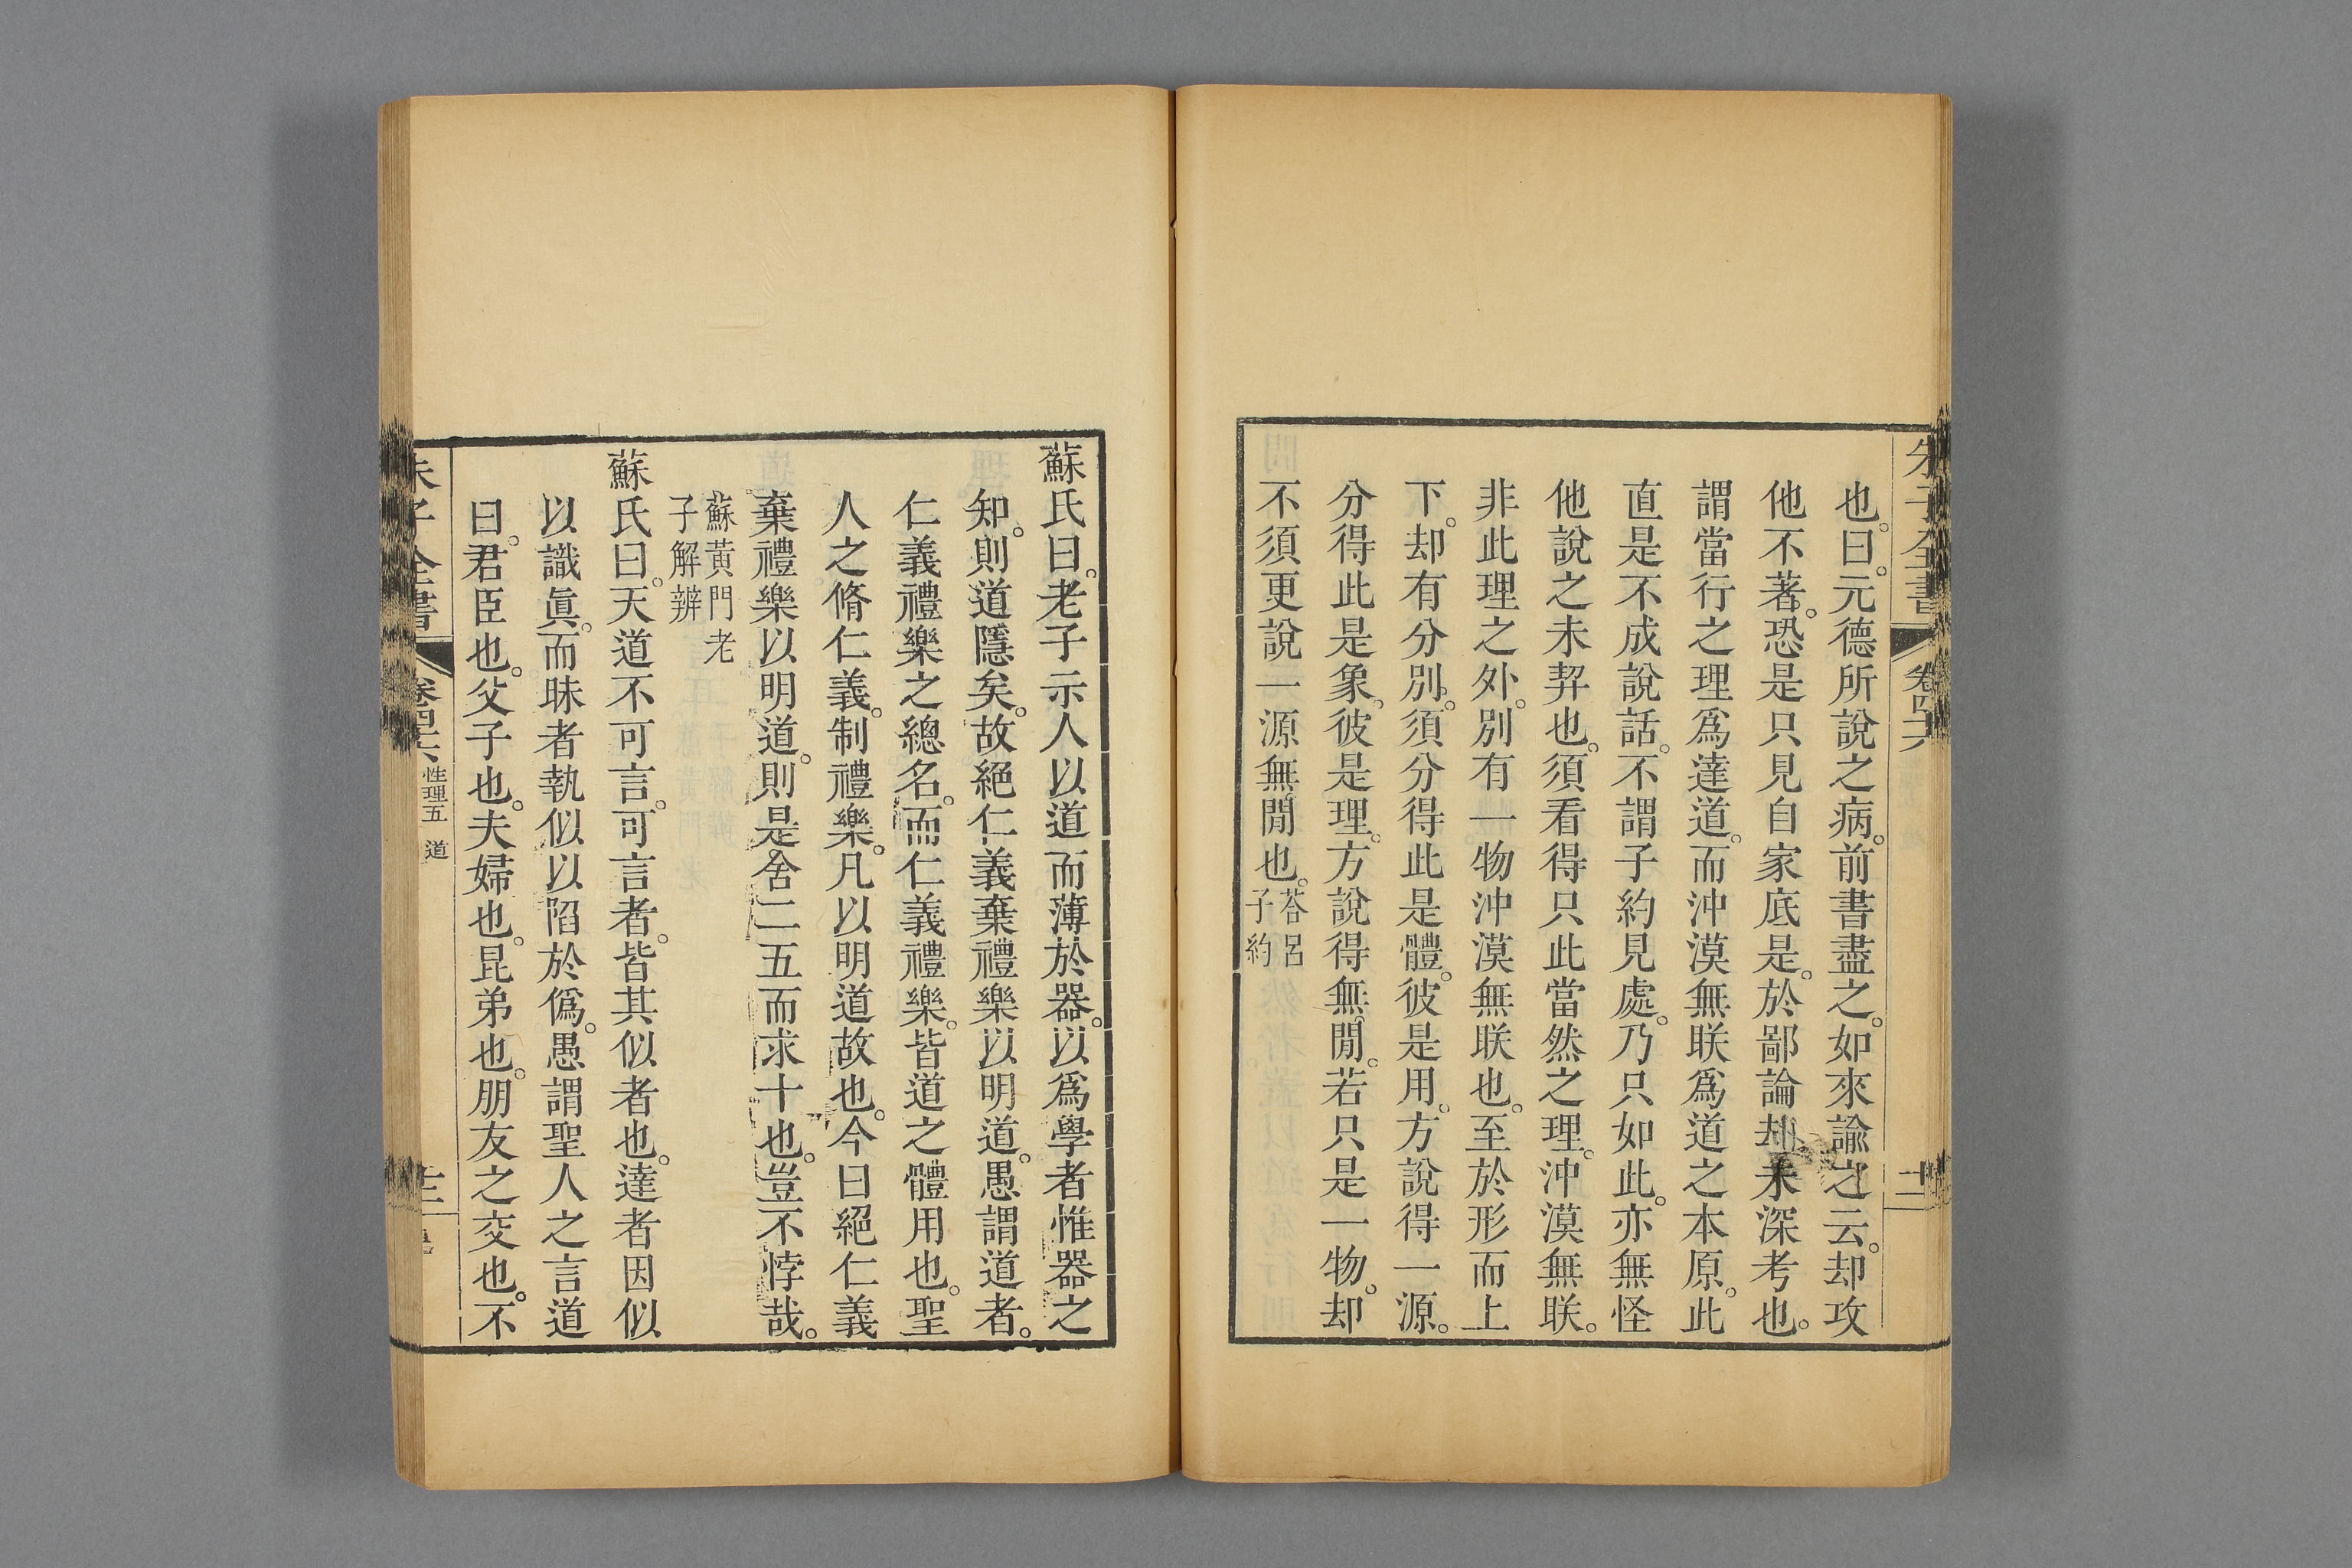 朱子全書 卷四十六 十二
也。曰。元德所說之病。前書盡之。如來諭之云。却攻
他不著。恐是只見自家底是。於鄙論却未深考也。
謂當行之理爲達道。而沖漠無朕爲道之本原。此
直是不成說話。不謂子約見處。乃只如此。亦無怪
他說之未契也。須看得只此當然之理。沖漠無朕。
非此理之外。別有一物沖漠無朕也。至於形而上
下。却有分別。須分得此是體。彼是用。方說得一源。
分得此是象。彼是理。方說得無閒。若只是一物。却
不須更說一源無閒也。
荅呂
子約
蘇氏曰。老子示人以道而薄於器。以爲學者惟器之
知。則道隱矣。故絕仁義棄禮樂以明道。愚謂道者。
仁義禮樂之總名。而仁義禮樂。皆道之體用也。聖
人之脩仁義。制禮樂。凡以明道故也。今曰絕仁義
棄禮樂以明道。則是舍二五而求十也。豈不悖哉。
蘇黃門老
子解辨
蘇氏曰。天道不可言。可言者。皆其似者也。達者因似
以識眞。而昧者執似以陷於僞。愚謂聖人之言道
曰。君臣也。父子也。夫婦也。昆弟也。朋友之交也。不
朱子全書 卷四十六 性理五 道